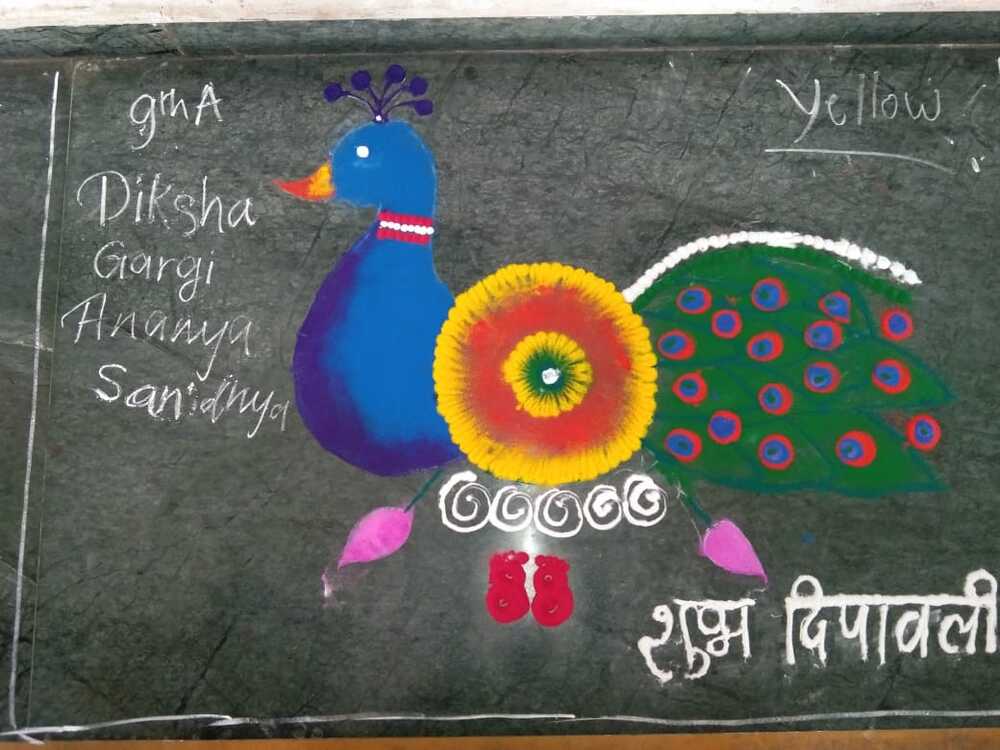 9th A
Diksha
Gargi
Ananya
Sanidhya
Yellow
शुभ दिपावली